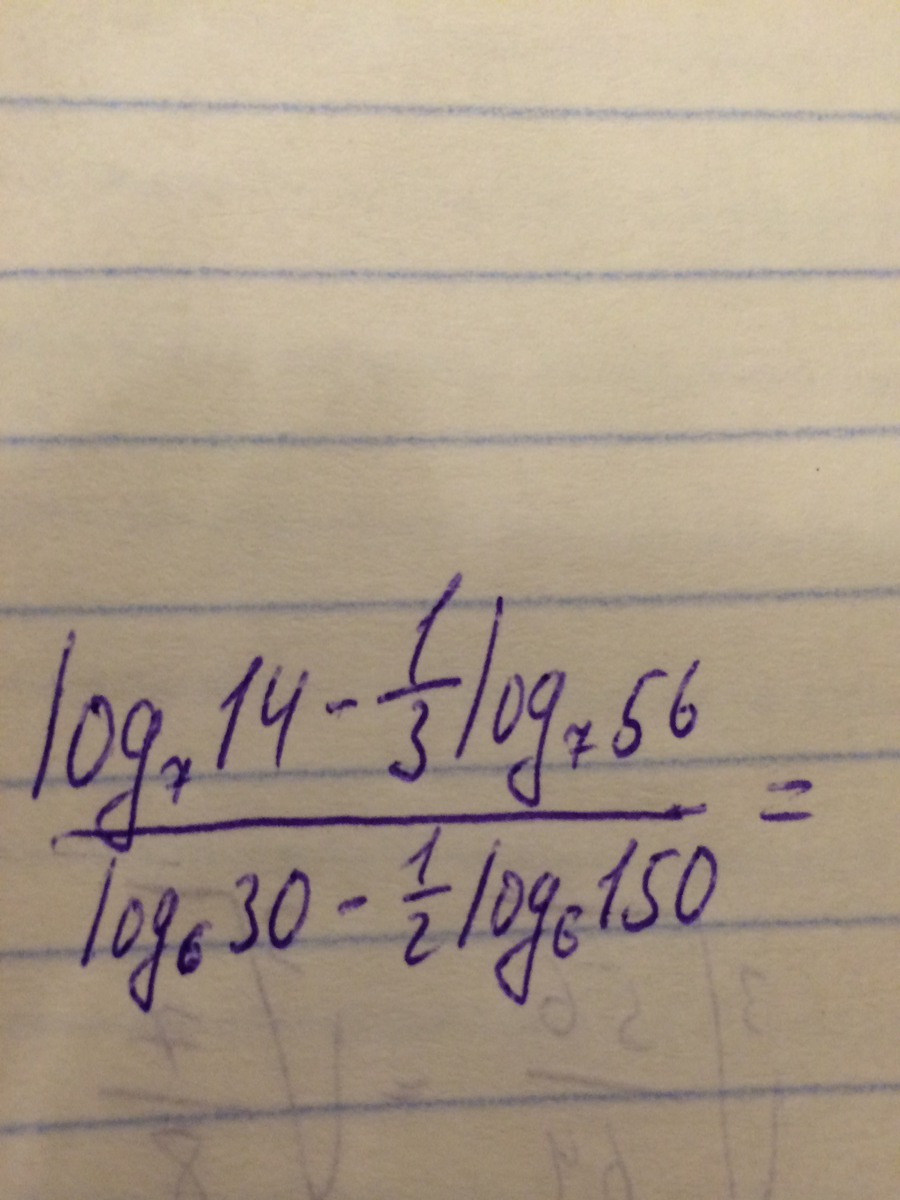 log₇14 - 1/3 log₇56
log₆30 - 1/2 log₆150 =